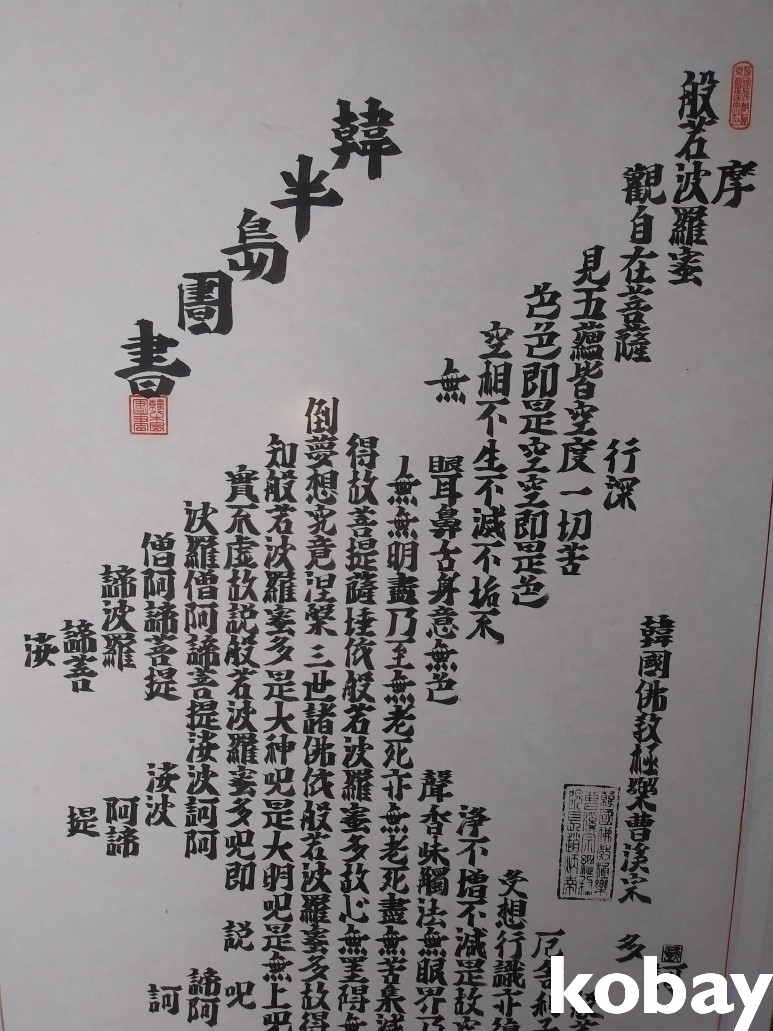 摩
訶
般若波羅蜜
多
觀自在菩薩
行深
般若
見五蘊皆空度一切苦
厄舍利子
色色即是空空即是色
受想行識亦復
空相不生不滅不垢不
淨不增不減是故空
無
眼耳鼻舌身意無色
聲香味觸法無眼界乃
無無明盡乃至無老死亦無老死盡無苦集滅
得故菩提薩埵依般若波羅蜜多故心無罣得無
倒夢想究竟涅槃三世諸佛依般若波羅蜜多故得
知般若波羅蜜多是大神呪是大明呪是無上呪
實不虛故説般若波羅蜜多呪即
説
呪
波羅僧阿諦菩提娑波訶阿
諦阿
僧阿諦菩提
娑波
訶
諦波羅
阿諦
諦菩
提
娑
韓半島圖書
韓國佛教極樂曹溪宗
kobay